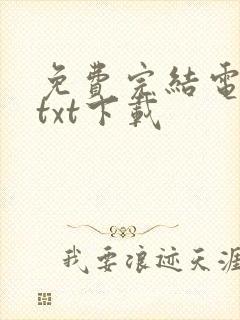 免費完結電
txt下載
我要浪迹天涯